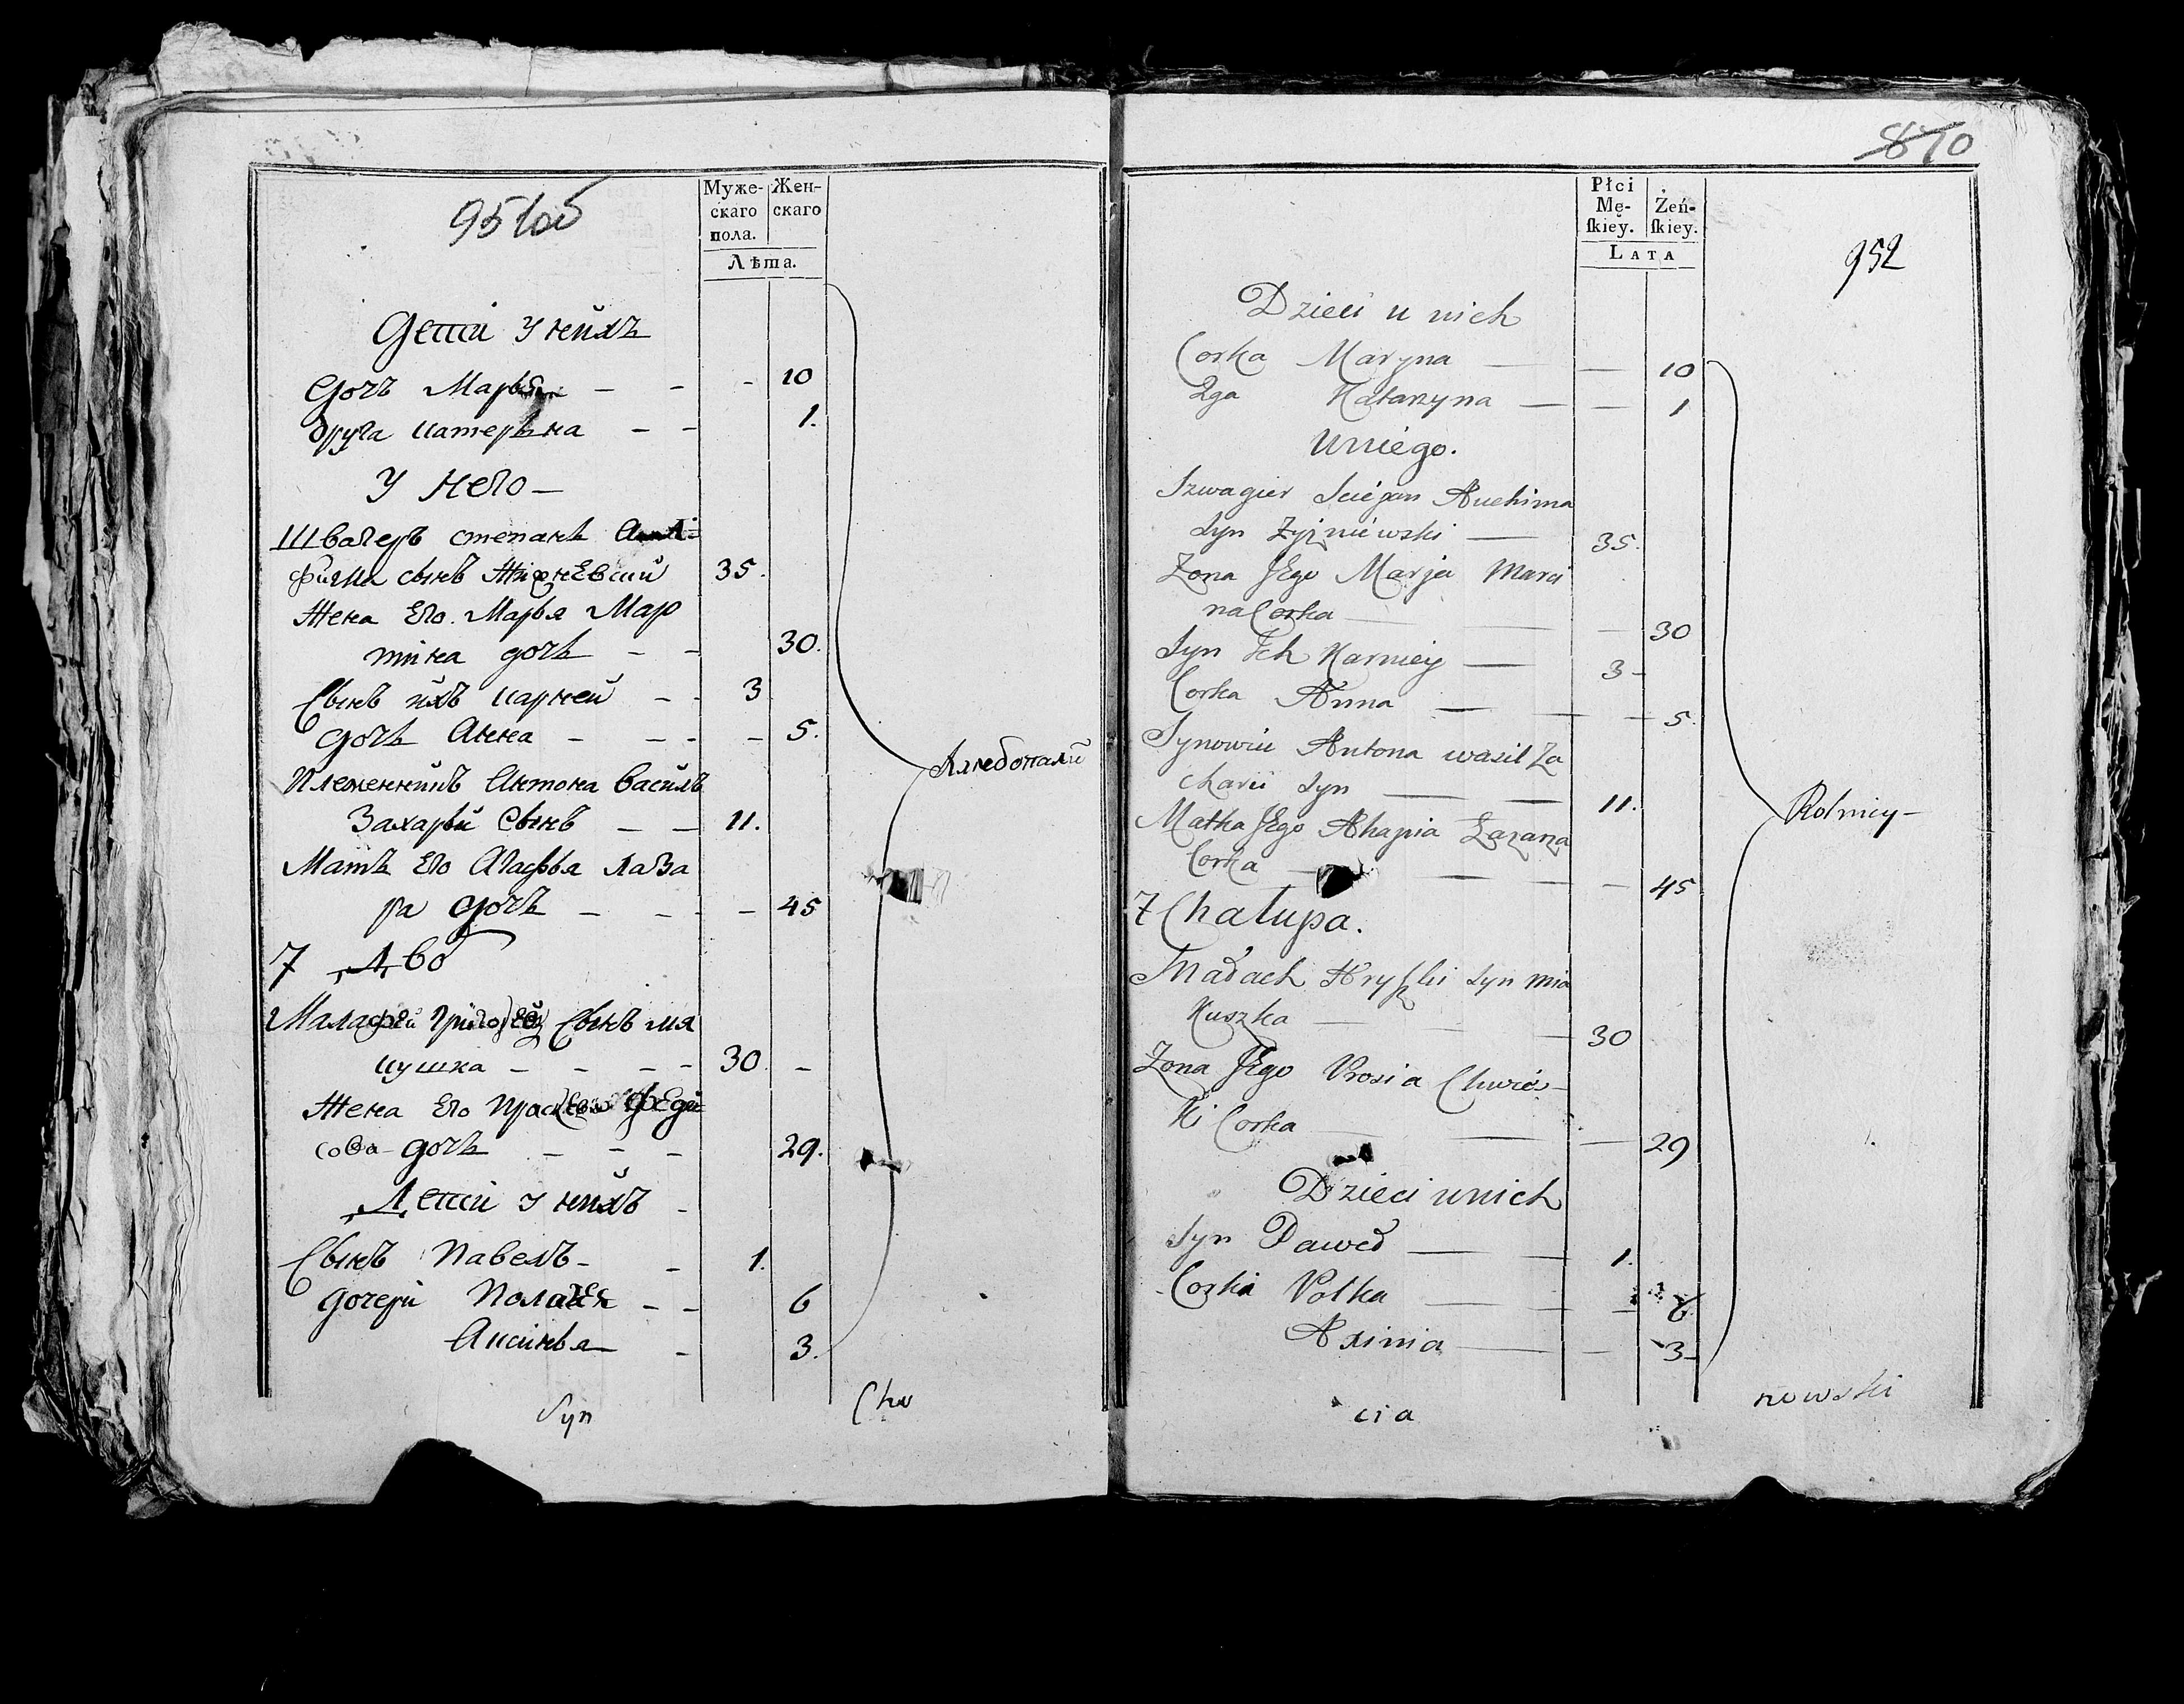 951об
Муже-
скаго
пола.
Жен-
скаго
Лѣта.
Дети У нийхъ
Дочъ Марья — — - 10
друга Катерина — — 1.
У него —
Швагеръ степанъ
сынъ Жизневский 35.
Жена Его. Марья Мар
тина дочъ — — 30.
Сынъ ихъ Карней — - 3
Дочъ Анна — — - — 5.
Племенникъ Антона василъ
Захарѣи Сынъ — — 11.
Матъ Его Агафья Лаза
ра дочъ — — - — 45
7 Дво
Малафей Сынъ мя
кушка — - — - 30. —
Жена Его
дочъ — — — 29.
Дети у нийхъ -
Сынъ Павелъ — - 1.
Дочери — — 6
Аксинья — - 3.
Хлебопаший
Syn
Chw
870
Płci
Mę-
ſkiey.
Żeń-
ſkiey.
Lata
952
Dzieci u nich
Corka Maryna — — 10
2ga Katarzyna — — 1
Uniego.
Szwagier Sciepan Auchima
Syn Zyzniewski — 35.
Zona JEgo Marja Marci
na Corka — — — 30
Syn Ich Karniey — 3 -
Corka Anna — — — 5.
Synowiec Antona wasil Za
charii Syn — — 11.
Matka JEgo Ahapia Łazarza
Corka — — — — 45
7 Chałupa.
Hryszki Syn mia
Kuszka — — — 30
Zona JEgo Prosia Chwies-
ki Corka — — — 29
Dzieci unich
Syn Paweł — — 1.
Corki Połka — — — 6
Axinia — — 3 -
Rolnicy -
cia
nowski